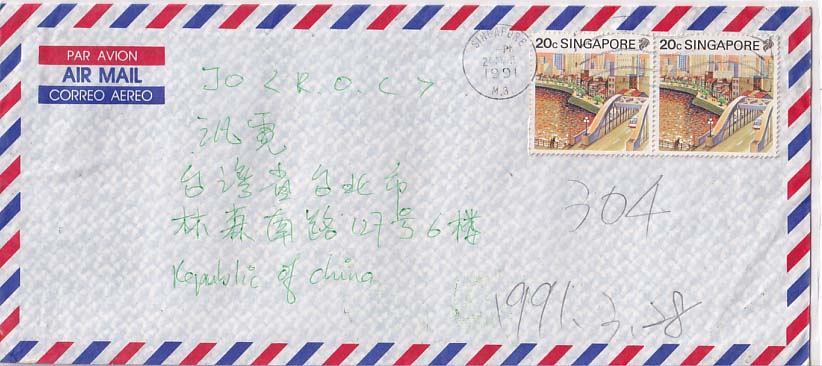 PAR AVION
AIR MAIL
CORREO AEREO
SINGAPORE
-PM
1991
20c SINGAPORE
20c SINGAPORE
TO < R. O. C >
台灣省台北市
林森南路127号6樓
Republic of China
304
1991.3.28